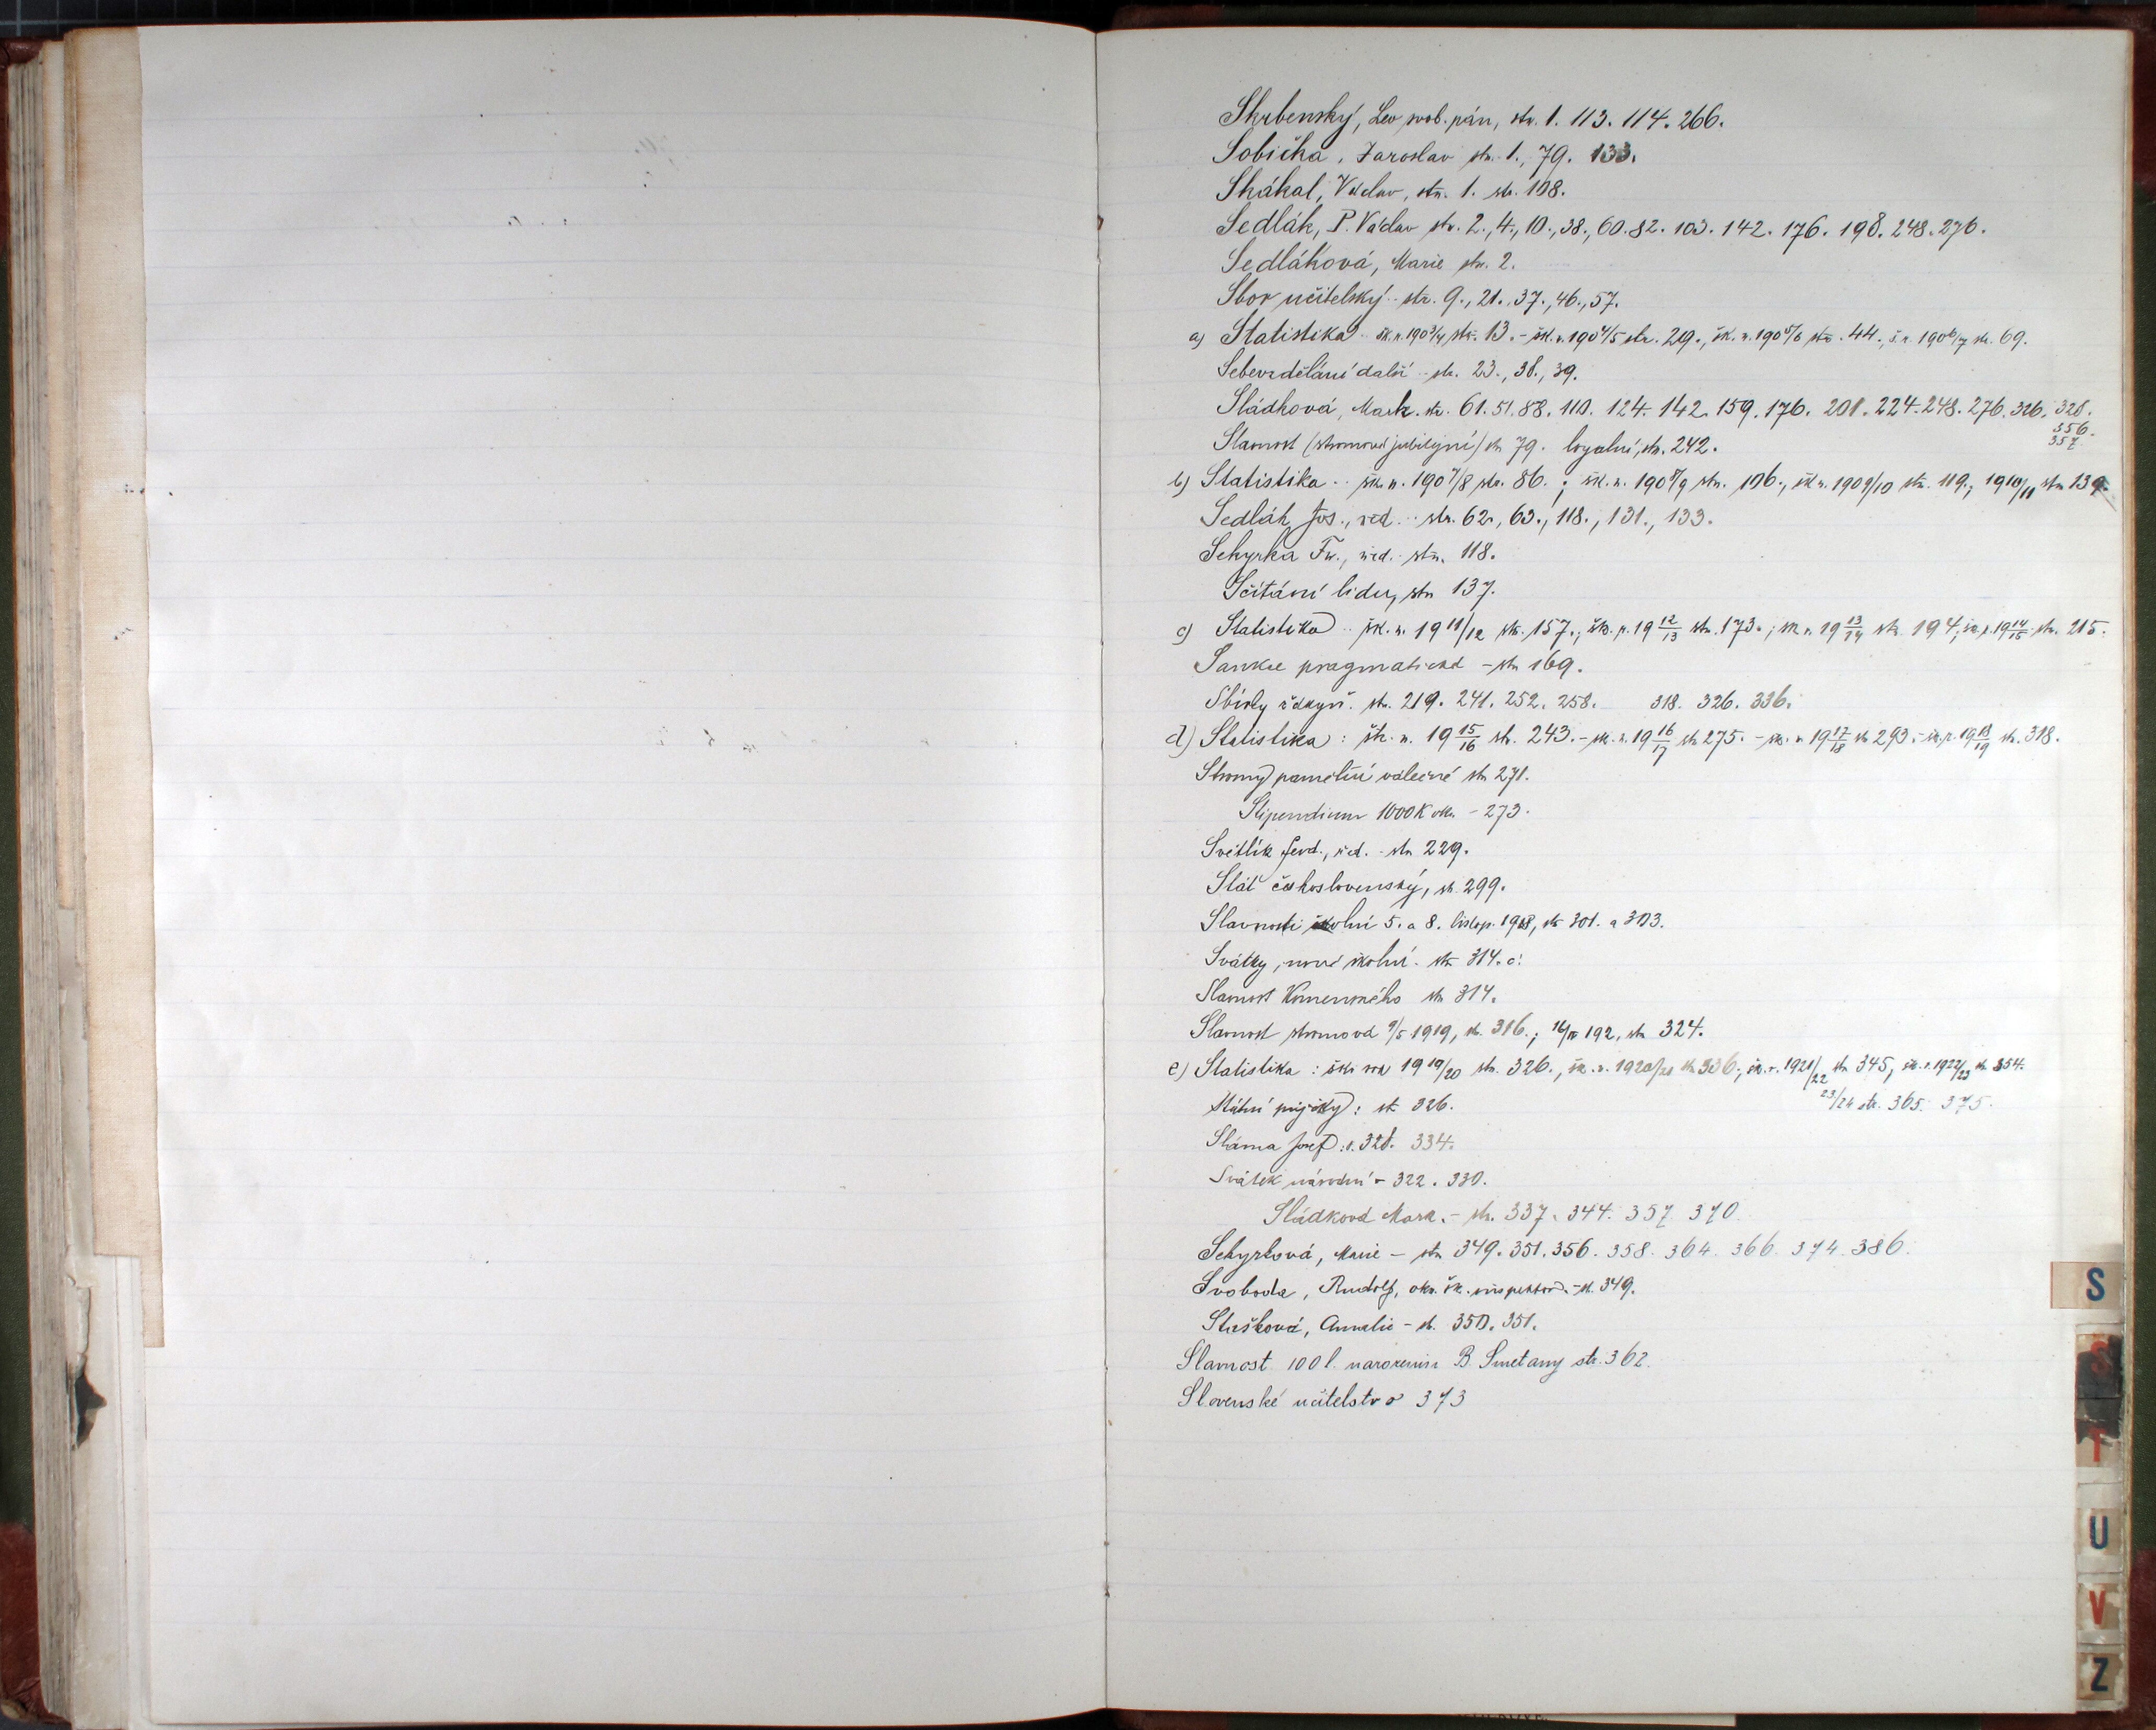 Skrbenský, Lev svob. pán, str. 1. 113. 114. 266.
Sobička, Jaroslav str. 1., 79. 133.
Skákal, Václav, str. 1. str. 108.
Sedlák, P. Václav str. 2., 4., 10., 38., 60. 82. 103. 142. 176. 198. 248. 276.
Sedláková, Marie str. 2.
Sbor učitelský str. 9., 21., 37., 46., 57.
a) Statistika šk. r. 1903/4 str. 13. – šk. r. 1904/5 str. 29., šk. r. 1905/6 str. 44., š. r. 1906/7 str. 69.
Sebevzdělání další str. 23., 38., 39.
Sládková, Mark. str. 61. 51. 88. 110. 124. 142. 159. 176. 201. 224. 248. 276. 326. 328.
356.
357
Slavnost (stromová jubilejní) str. 79. loyalní, str. 242.
b) Statistika šk. r. 1907/8 str. 86. ; šk. r. 1908/9 str. 106., šk. r. 1909/10 str. 119., 1910/11 str. 139.
Sedlák Jos., řed. str. 62., 63., 118., 131., 133.
Sehyrka Fr., řed. str. 118.
Sčítání lidu, str. 137.
c) Statistika šk. r. 1911/12 str. 157., šk. r. 19 12/13 str. 173. ; šk. r. 19 13/14 str. 194, šk. r. 19 14/15 str. 215.
Sankce pragmatická – str. 169.
Sbírky str. 219. 241. 252. 258. 318. 326. 336.
d) Statistika : šk. r. 19 15/16 str. 243. – šk. r. 19 16/17 str. 275. – šk. r. 19 17/18 str. 293. – šk. r. 19 18/19 str. 318.
Stromy pamětní válečné str. 271.
Stipendium 1000 K – 273.
Světlík Ferd., řed. – str. 229.
Stát československý, str. 299.
Slavnosti školní 5. a 8. listop. 1918, str. 301. a 303.
Svátky, nové školní – str. 314.
Slavnost Komenského str. 314.
Slavnost stromová 9/5 1919, str. 316. ; 192, str. 324.
e) Statistika : šk. rok 1919/20 str. 326., šk. r. 1920/21 str. 336., šk. r. 1921/22 str. 345, šk. r. 1922/23 str. 354.
23/24 str. 365. 375.
Státní půjčky : str. 326.
Sláma Josef : s. 328. 334.
Svátek národní – 322. 330.
Sládková Mark. – str. 337. 344. 357. 370.
Sehyrková, Marie – str. 349. 351. 356. 358. 364. 366. 374. 386.
Svoboda, Rudolf, okr. šk. inspektor – str. 349.
Stašková, Amalie – str. 350. 351.
Slavnost 100 l. narozenin B. Smetany str. 362.
Slovenské učitelstvo 373
S
T
U
V
Z